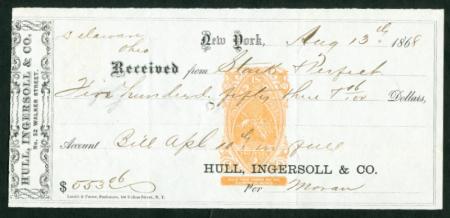 HULL, INGERSOLL & CO.
No. 32 WALKER STREET.
Delaware
Ohio
New York, Aug 13th 1868
Received from Stark & Perfect
Five hundred fifty three & 06/100 Dollars,
Account Bill Apl 10th in full
HULL, INGERSOLL & CO.
$ 553 06
Per Moran